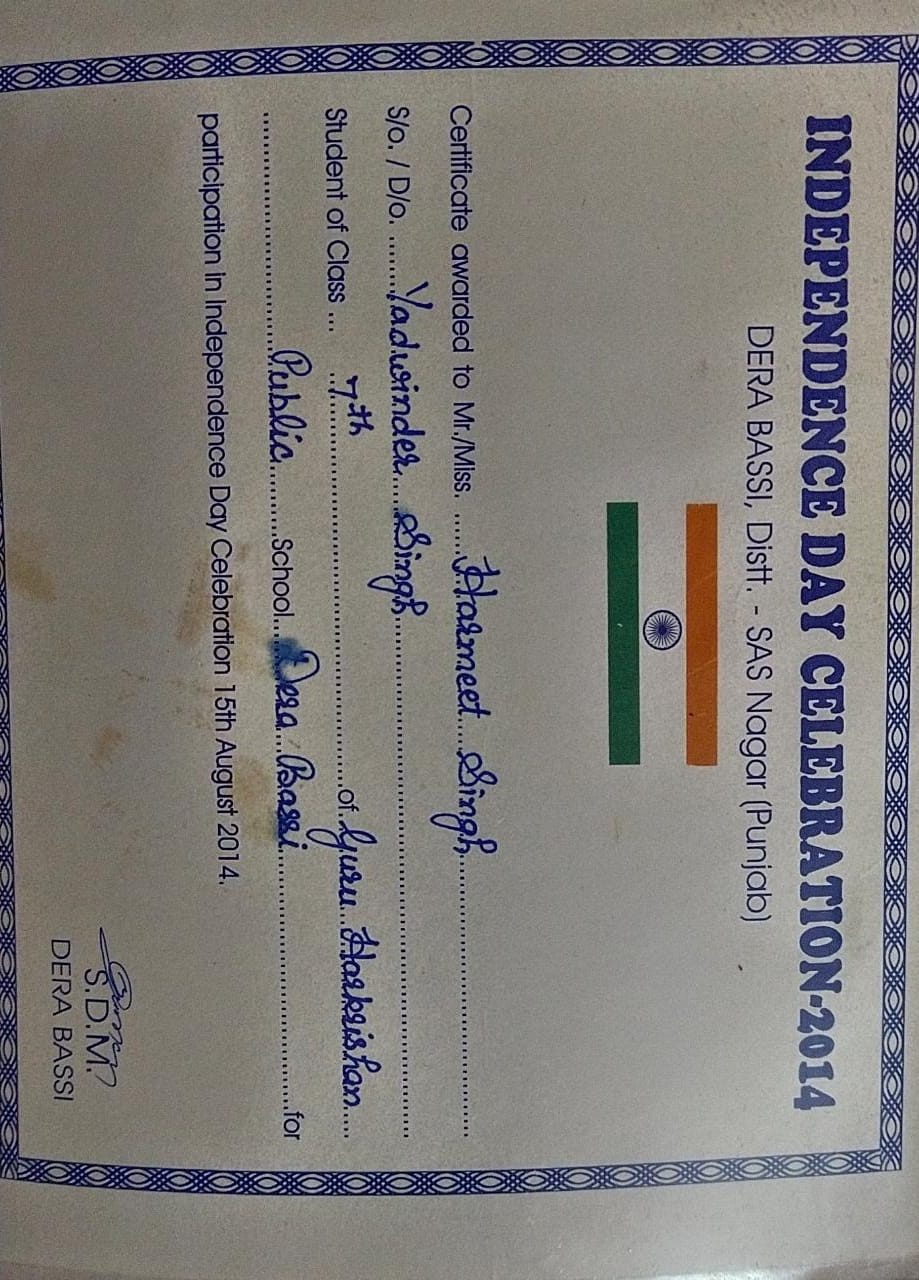 INDEPENDENCE DAY CELEBRATION-2014
DERA BASSI, Distt. - SAS Nagar (Punjab)
Certificate awarded to Mr./Miss. ......Harmeet....Singh................................
S/o. / D/o. ........Yadwinder.....Singh................................
Student of Class ... 7th ................................of Guru...Harkrishan.....
................................Public..........School...Dera...Bassi................................for
participation in Independence Day Celebration 15th August 2014.
S.D.M.
DERA BASSI